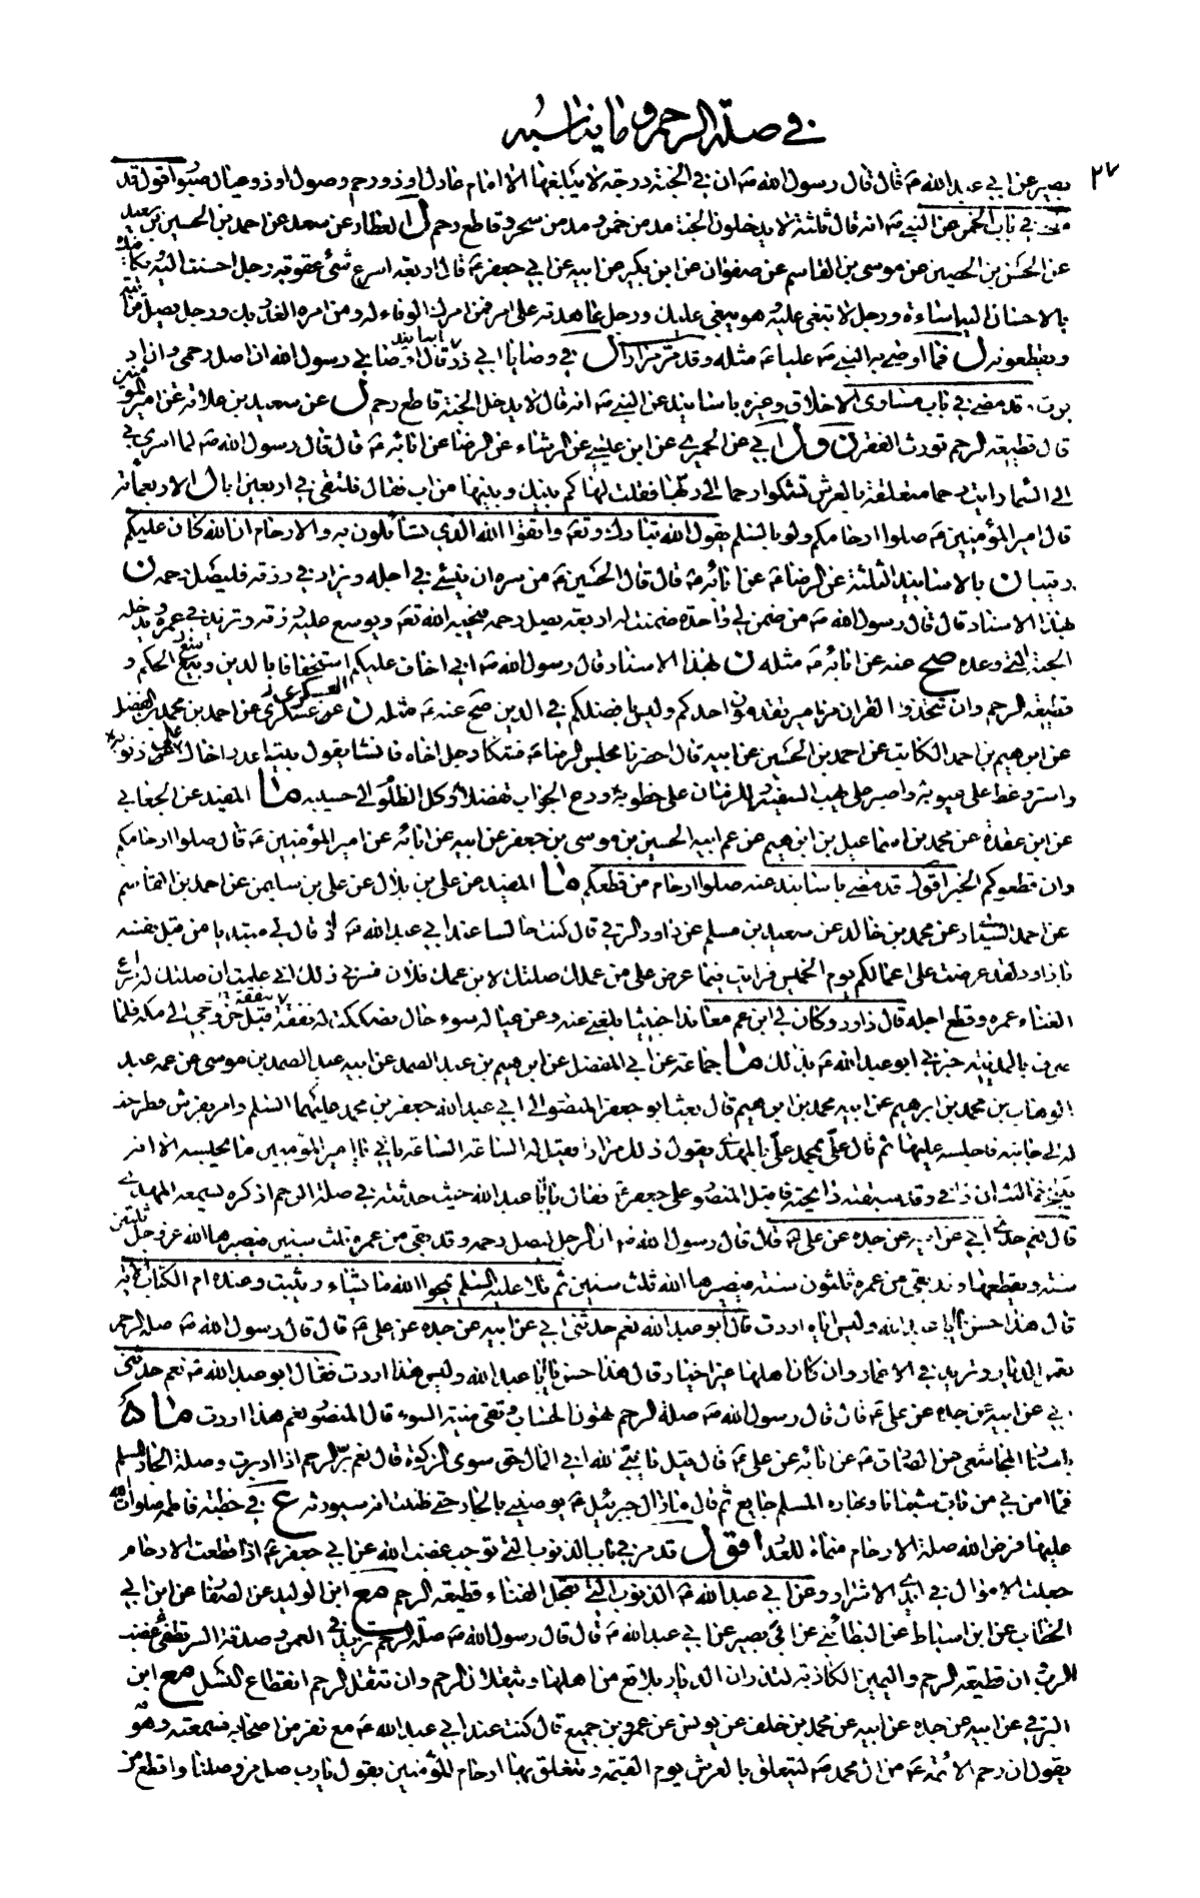 في صلة الرحم وما يناسبه
٢٧
بصير عن ابي عبد الله ع قال قال رسول الله ص ان في الجنة درجة لا يبلغها الا امام عادل او ذو رحم وصول او ذو عيال صبور اقول قد
مضى في باب الخمر عن النبي ص انه قال ثلثة لا يدخلون الجنة مدمن خمر ومدمن سحر وقاطع رحم ل العطار عن سعد عن احمد بن الحسين بن سعيد
عن الحسن بن الحصين عن موسى بن القاسم عن صفوان عن ابن بكير عن ابيه عن ابي جعفر ع قال اربعة اسرع شئ عقوبة رجل احسنت اليه يكافئك
بالاحسان اليه اساءة ورجل لا تبغي عليه وهو يبغي عليك ورجل عاهدته على امر فمن امرك الوفاء له ومن امره الغدر بك ورجل يصل قرابته
ويقطعونه ل فيما اوصى به النبي ص عليا ع مثله وقد مر مرارا ل في وصايا ابي ذر باسانيد قال اوصاني رسول الله ان اصل رحمي وان ادبرت
قد مضى في باب مساوي الاخلاق وغيره باسانيد عن النبي ص انه قال لا يدخل الجنة قاطع رحم ل عن سعيد بن علاقة عن امير المؤمنين
قال قطيعة الرحم تورث الفقر ن ل ابي عن الحميري عن ابن عيسى عن الوشاء عن الرضا عن ابائه ع قال قال رسول الله ص لما اسري بي
الى السماء رايت رحما متعلقة بالعرش تشكوا رحما الى ربها فقلت لها كم بينك وبينها من اب فقال نلتقي في اربعين ابا ل الاربعمائة
قال امير المؤمنين ع صلوا ارحامكم ولو بالسلم يقول الله تبارك وتعالى واتقوا الله الذي تسائلون به والارحام ان الله كان عليكم
رقيبا ن بالاسانيد الثلثة عن الرضا ع عن ابائه ع قال قال الحسين ع من سره ان ينسئ في اجله ويزاد في رزقه فليصل رحمه ن
بهذا الاسناد قال قال رسول الله ص من ضمن لي واحدة ضمنت له اربعة يصل رحمه فيحبه الله تعالى ويوسع عليه رزقه ويزيد في عمره ويدخله
الجنة التي وعده صح عنه عن ابائه ع مثله ن بهذا الاسناد قال رسول الله ص اني اخاف عليكم استخفافا بالدين وبيع الحكم و
قطيعة الرحم وان تتخذوا القران مزامير تقدمون احدكم وليس بافضلكم في الدين صح عنه ع مثله ن العسكري عن احمد بن محمد بن الفضل
عن ابرهيم بن احمد الكاتب عن احمد بن الحسين عن ابيه قال احضرنا مجلس الرضا ع فشكا رجل اخاه فانشا يقول اعذر اخاك على ذنوبه
واستر وغط على عيوبه واصبر على بهت السفيه وللزمان على خطوبه ودع الجواب تفضلا وكل الظلوم الى حسيبه ما المفيد عن الجعابي
عن ابن عقدة عن محمد بن اسماعيل بن ابرهيم عن عم ابيه الحسين بن موسى بن جعفر عن ابيه عن ابائه عن امير المؤمنين ع قال صلوا ارحامكم
وان قطعوكم الخبر اقول قد مضى باسانيد عنه صلوا ارحام من قطعكم ما المفيد عن علي بن بلال عن علي بن سليمن عن احمد بن القاسم
عن احمد السياري عن محمد بن خالد عن سعيد بن مسلم عن داود الرقي قال كنت جالسا عند ابي عبد الله ع اذ قال لي مبتديا من قبل نفسه
يا داود لقد عرضت علي اعمالكم يوم الخميس فرايت فيما عرض علي من عملك صلتك لابن عمك فلان فسرني ذلك اني علمت ان صلتك له اسرع
لفناء عمره وقطع اجله قال داود وكان لي ابن عم معاندا خبيثا بلغني عنه وعن عياله سوء حال فصككت له نفقة قبل خروجي الى مكة فلما
صرت بالمدينة خبرني ابو عبد الله ع بذلك ما جماعة عن ابي المفضل عن ابرهيم بن عبد الصمد عن ابيه عبد الصمد بن موسى عن عمه عبد
الوهاب بن محمد بن ابرهيم عن ابيه محمد بن ابرهيم قال بعث ابو جعفر المنصور الى ابي عبد الله جعفر بن محمد عليهما السلم وامر بفرش فطرحت
له الى جانبه فاجلسه عليها ثم قال علي بمحمد علي بالمهدي يقول ذلك مرارا فقيل له الساعة الساعة ياتي يا امير المؤمنين ما يحبسه الا انه
يتبخر فما لبث ان وافى وقد سبقته رايحته فاقبل المنصور على جعفر ع فقال يا با عبد الله حديث حدثتنيه في صلة الرحم اذكره ليسمعه المهدي
قال نعم حدثني ابي عن ابيه عن جده عن علي ع قال قال رسول الله ص ان الرجل ليصل رحمه وقد بقي من عمره ثلث سنين فيصيرها الله عز وجل ثلثين
سنة ويقطعها وقد بقي من عمره ثلثون سنة فيصيرها الله ثلث سنين ثم تلا عليه السلم يمحوا الله ما يشاء ويثبت وعنده ام الكتاب الاية
قال هذا حسن يا با عبد الله وليس اياه اردت قال ابو عبد الله نعم حدثني ابي عن ابيه عن جده عن علي ع قال قال رسول الله ص صلة الرحم
تعمر الديار وتزيد في الاعمار وان كان اهلها غير اخيار قال هذا حسن يا با عبد الله وليس هذا اردت فقال ابو عبد الله ع نعم حدثني
ابي عن ابيه عن جده عن علي ع قال قال رسول الله ص صلة الرحم تهون الحساب وتقي ميتة السوء قال المنصور نعم هذا اردت ما
باسناد المجاشعي عن الصادق ع عن ابائه عن علي ع قال قيل يا نبي الله افي المال حق سوى الزكوة قال نعم بر الرحم اذا ادبرت وصلة الجار المسلم
فما امن بي من بات شبعانا وجاره المسلم جايع ثم قال ما زال جبرئيل ع يوصيني بالجار حتى ظننت انه سيورثه ع في خطبة فاطمة صلوات الله
عليها فرض الله صلة الارحام منماة للعدد اقول قد مر في باب الذنوب التي توجب غضب الله عن ابي جعفر ع اذا قطعت الارحام
جعلت الاموال في ايدي الاشرار وعن ابي عبد الله ع الذنوب التي تعجل الفناء قطيعة الرحم مع ابن الوليد عن الصفار عن ابن ابي
الخطاب عن ابن اسباط عن البطائني عن ابي بصير عن ابي عبد الله ع قال قال رسول الله ص صلة الرحم تزيد في العمر وصدقة السر تطفئ غضب
الرب وان قطيعة الرحم واليمين الكاذبة لتذران الديار بلاقع من اهلها ويثقلان الرحم وان تثقل الرحم انقطاع النسل مع ابن
البرقي عن ابيه عن جده عن ابيه عن محمد بن خلف عن يونس عن عمرو بن جميع قال كنت عند ابي عبد الله ع مع نفر من اصحابه فسمعته وهو
يقول ان رحم الائمة ع من ال محمد ص ليتعلق بالعرش يوم القيمة وتتعلق بها ارحام المؤمنين يقول يا رب صل من وصلنا واقطع من